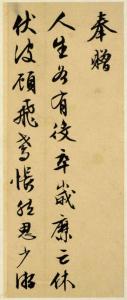 奉贈
人生各有役卒歲靡云休
伏波顧飛鳶悵然思少游